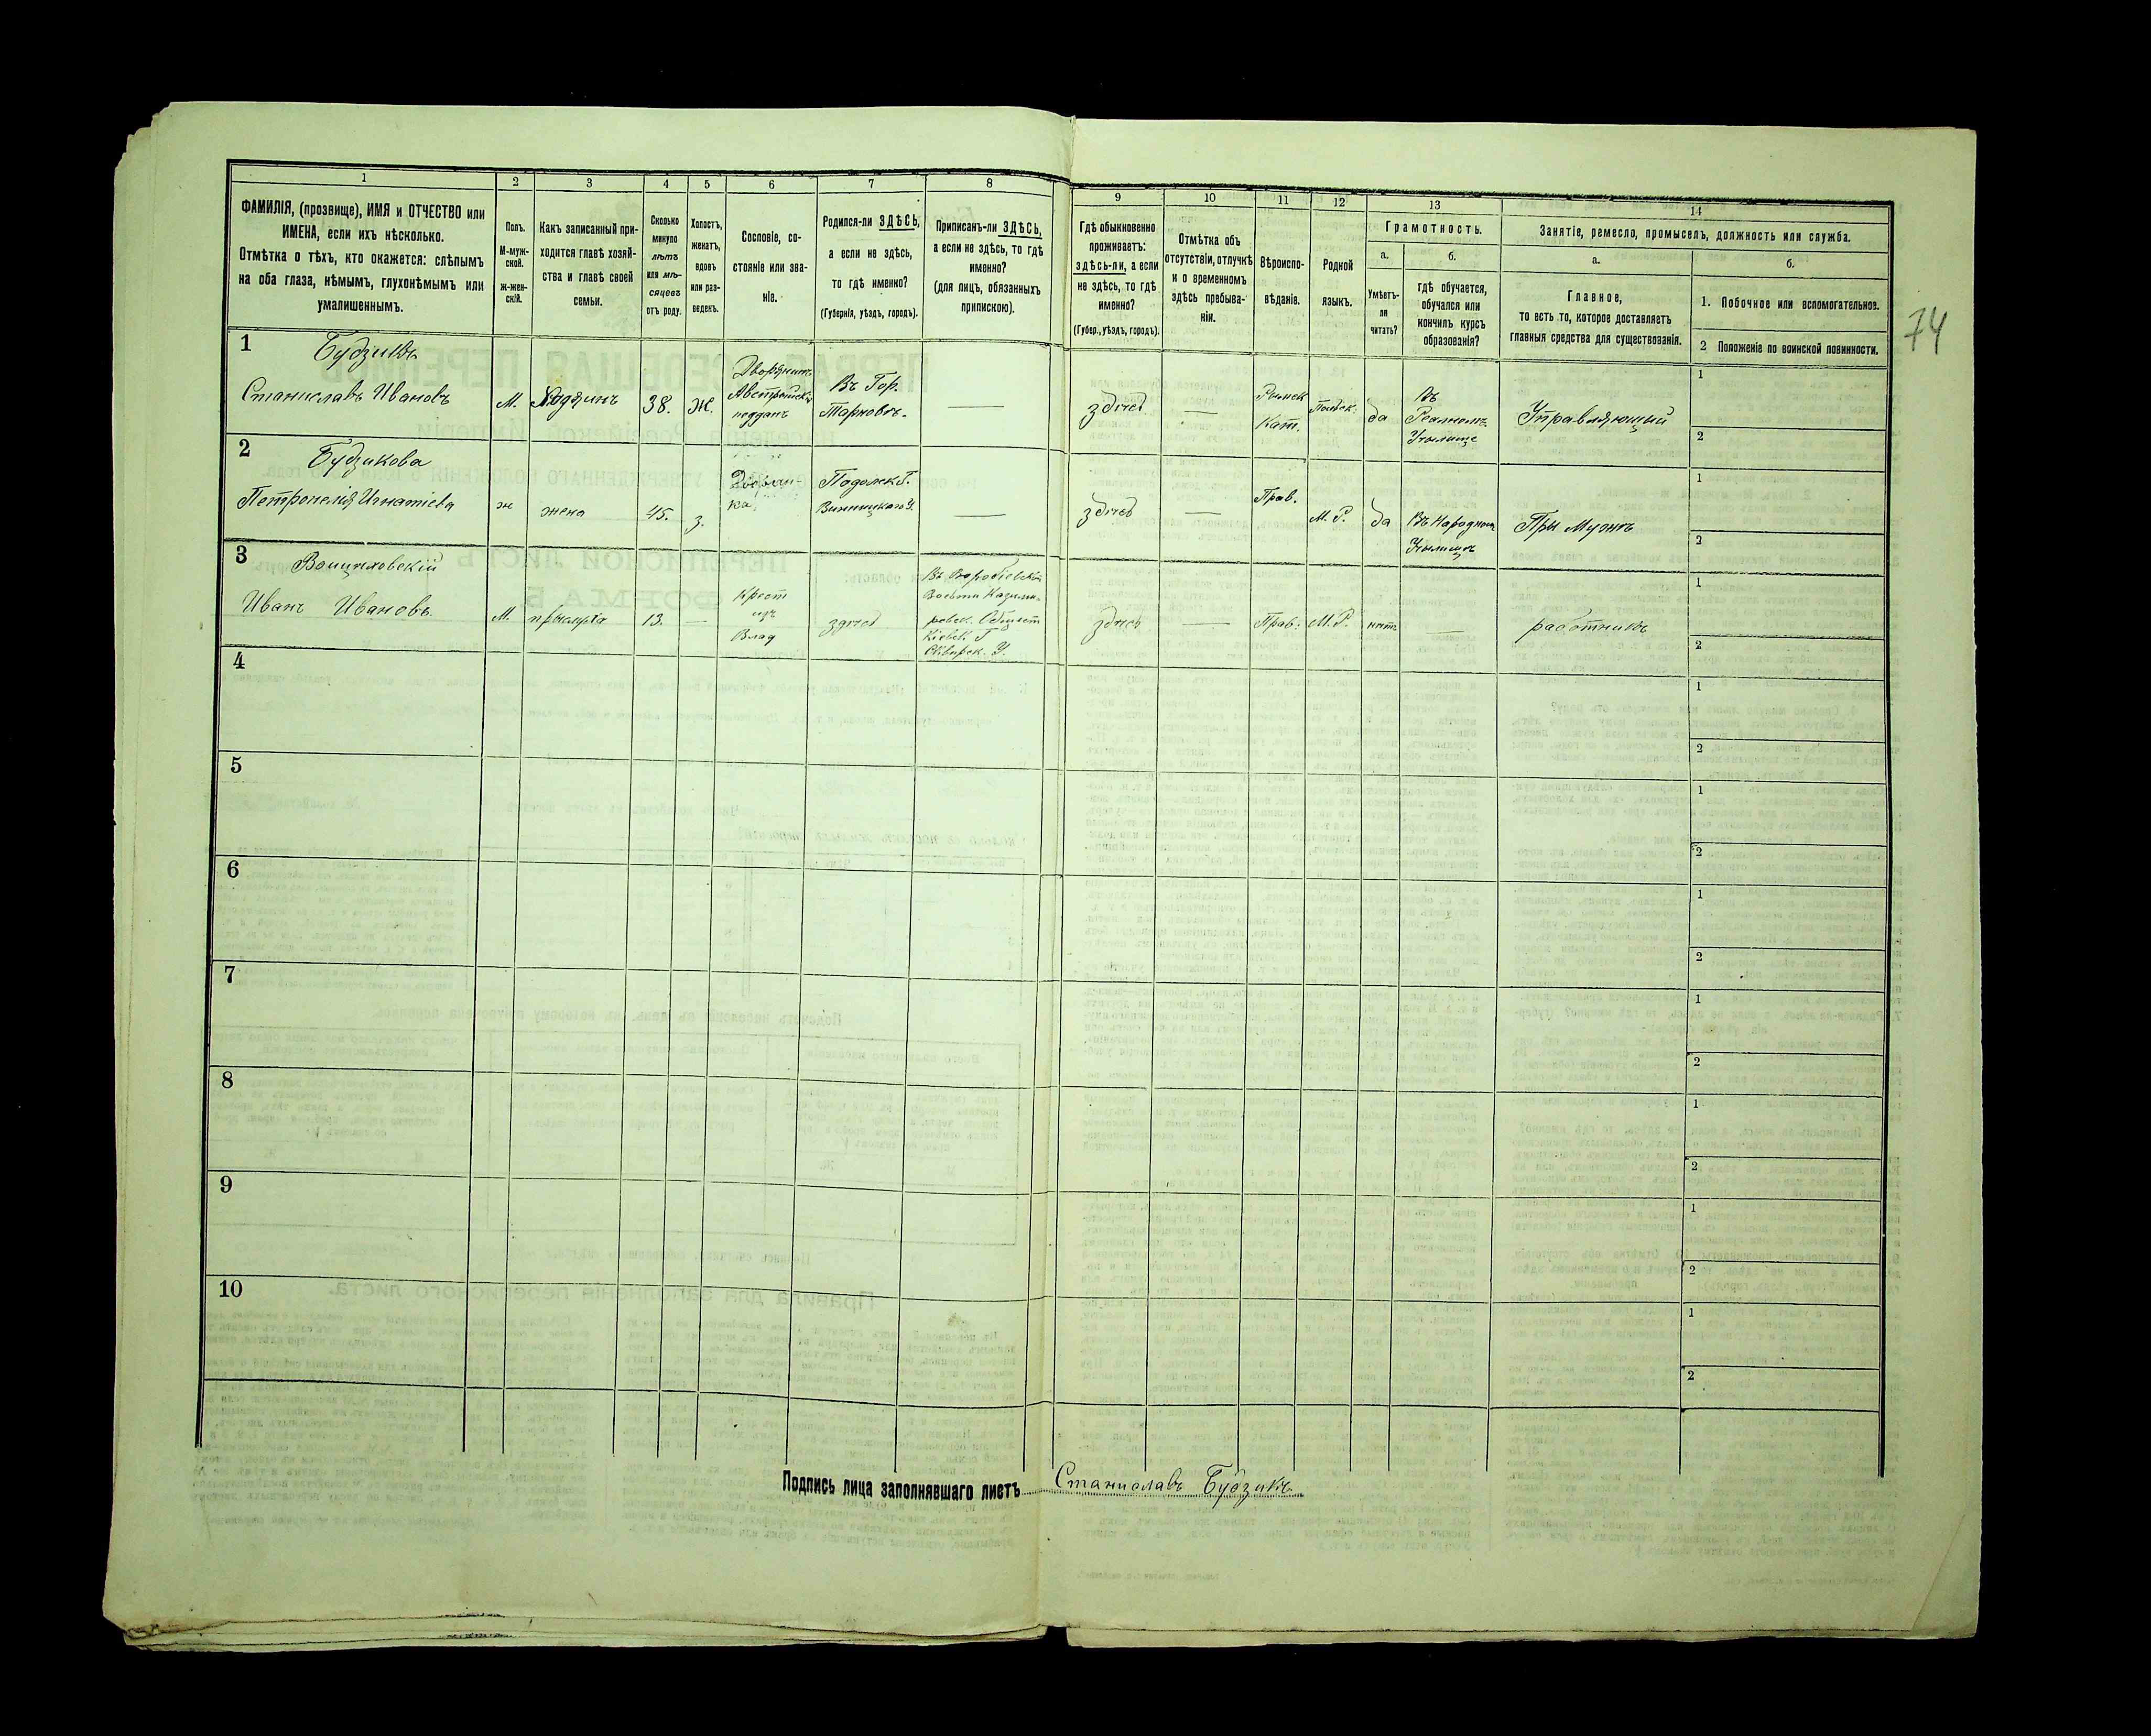 1
2
3
4
5
6
7
8
ФАМИЛІЯ, (прозвище), ИМЯ и ОТЧЕСТВО или
ИМЕНА, если ихъ нѣсколько.
Отмѣтка о тѣхъ, кто окажется: слѣпымъ
на оба глаза, нѣмымъ, глухонѣмымъ или
умалишеннымъ.
Полъ.
М-муж-
ской.
ж-жен-
скій.
Какъ записанный при-
ходится главѣ хозяй-
ства и главѣ своей
семьи.
Сколько
минуло
лѣтъ
или мѣ-
сяцевъ
отъ роду.
Холостъ,
женатъ,
вдовъ
или раз-
веденъ.
Сословіе, со-
стояніе или зва-
ніе.
Родился-ли ЗДѢСЬ,
а если не здѣсь,
то гдѣ именно?
(Губернія, уѣздъ, городъ).
Приписанъ-ли ЗДѢСЬ,
а если не здѣсь, то гдѣ
именно?
(для лицъ, обязанныхъ
припискою).
9
10
11
12
13
14
Гдѣ обыкновенно
проживаетъ:
здѣсь-ли, а если
не здѣсь, то гдѣ
именно?
(Губер., уѣздъ, городъ).
Отмѣтка объ
отсутствіи, отлучкѣ
и о временномъ
здѣсь пребыва-
ніи.
Вѣроиспо-
вѣданіе.
Родной
языкъ.
Грамотность.
а.
Умѣетъ-
ли
читать?
б.
гдѣ обучается,
обучался или
кончилъ курсъ
образованія?
Занятіе, ремесло, промыселъ, должность или служба.
а.
Главное,
то есть то, которое доставляетъ
главныя средства для существованія.
б.
1. Побочное или вспомогательное.
2 Положеніе по воинской повинности.
74
1
Будзикъ
Станиславъ Ивановъ
М.
Хозяинъ
38.
Ж.
Дворянинъ
Австрійск.
поддан
Въ Гор.
Тарновѣ.
здѣсь
Римск
Кат.
Польск.
да
Въ
Реальномъ
Училище
Управляющій
1
2
2
Будзикова
Петронелія Игнатіева
ж
жена
45.
з.
Дворян-
ка
Подольск. Г.
Винницкаго У.
здѣсь
Прав.
М. Р.
да
Въ Народномъ
Училищѣ
При Мужѣ
1
2
3
Войцеховскій
Иванъ Ивановъ
М.
прислуга
13.
Крест
изъ
Влад
здѣсь
Кіевск. Г
Сквирск. У.
здѣсь
Прав.
М. Р.
нѣтъ
работникъ
1
2
4
1
2
5
1
2
6
1
2
7
1
2
8
1
2
9
1
2
10
1
2
Подпись лица заполнявшаго листъ Станиславъ Будзикъ